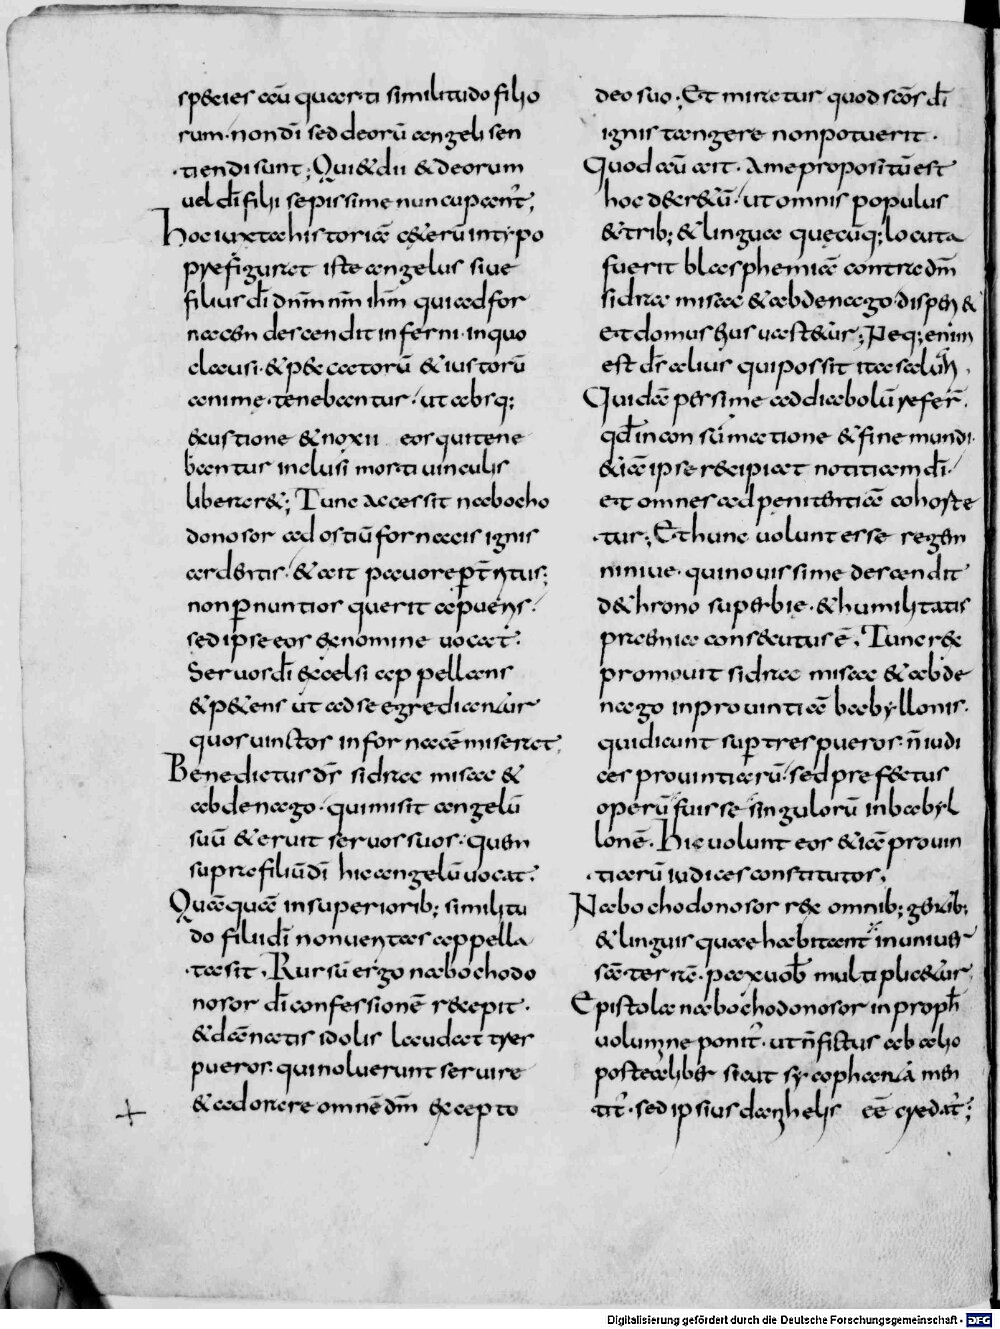 species aut̄ quarti similitudo filio
rum· non dī sed deorū angeli sen
tiendi sunt; Qui & dii & deorum
uel dī filii sepissime nuncupant̄;
Hoc iuxta historiā c&erū in typo
prefigurat iste angelus siue
filius dī dn̄m nr̄m ihm̄ qui ad for
nacem descendit inferni· in quo
clausi· & peccatorū & iustorū
anime· tenebantur· ut absq;
exustione & noxii eos qui tene
bantur inclusi mortis uinculis
liberar&; Tunc accessit nabocho
donosor ad ostiū fornacis ignis
ardentis· & ait pauore pt̄ritus;
non p nuntios querit a pueris·
sed ipse eos ex nomine uocat·
Seruos dī excelsi appellans
& petens ut ad se egrediantur
quos uinctos in fornacē miserat;
Benedictus ds̄ sidrac misac &
abdenago· qui misit angelū
suū & eruit seruos suos· quem
supra filiū dī hic angelū uocat·
Quāquā in superiorib; similitu
do filii dī non ueritas appella
ta sit· Rursū ergo nabochodo
nosor dī confessionē recepit·
& dānatis idolis laudat tres
pueros· qui noluerunt seruire
& adorare omnē dm̄ excepto
deo suo; Et miratur quod scōs dī
ignis tangere non potuerit·
Quod aū ait· A me propositū est
hoc decr&ū· ut omnis populus
& trib; & lingua quęcūq; locuta
fuerit blasphemiā contra dm̄
sidrac misac & abdenago· disper&
et domus eius uastetur; Neq; enim
est ds̄ alius qui possit ita saluare·
Quidā pessime ad diabolū refert·
qd̄ in consūmatione & fine mundi·
&iā ipse recipiat notitiam dī·
et omnes ad penitentiā cohorte
tur; Et hunc uolunt esse regem
niniue· qui nouissime descendit
de throno superbie· & humilitatis
premia consecutus ē· Tunc rex
promouit sidrac misac & abde
nago in prouintiā babyllonis·
qui dicunt sup tres pueros· n̄ iudi
ces prouintiarū· sed prefectus
operū fuisse singulorū in babyl
lonē· Hic uolunt eos &iā prouin
tiarū iudices constitutos·
Nabochodonosor rex omnib; gentib;
& linguis quae habitant in uniuer
sa terra· pax uob̄ multiplicetur·
Epistola nabochodonosor in proph̄
uolumne ponit̄· ut n̄ fictus ab alio
postea liber sicut sycophanta men
tit̄· sed ipsius danihelis eē credat̄;